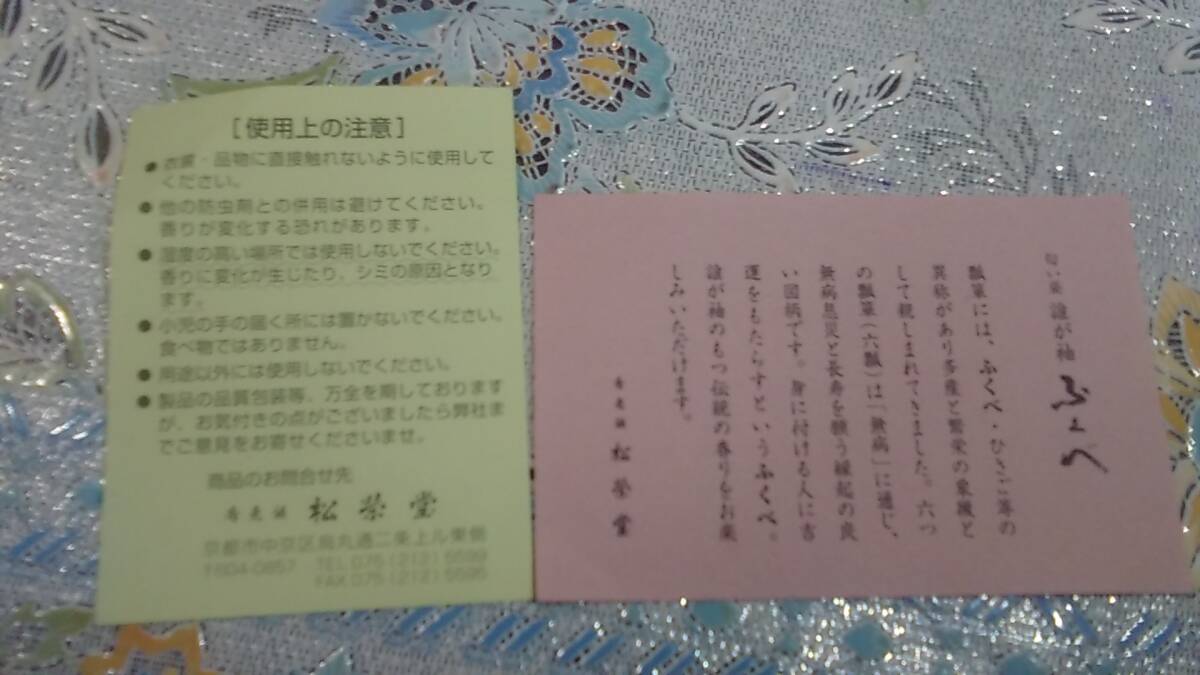 ［使用上の注意］
● 衣類・品物に直接触れないように使用して
ください。
● 他の防虫剤との併用は避けてください。
香りが変化する恐れがあります。
● 湿度の高い場所では使用しないでください。
香りに変化が生じたり、シミの原因となり
ます。
● 小児の手の届く所には置かないでください。
食べ物ではありません。
● 用途以外には使用しないでください。
● 製品の品質包装等、万全を期しております
が、お気付きの点がございましたら弊社ま
でご意見をお寄せくださいませ。
商品のお問合せ先
香老舗 松栄堂
京都市中京区烏丸通二条上ル東側
〒604-0857 TEL 075(212)5599
FAX 075(212)5595
匂い袋 誰が袖 ふくべ
瓢箪には、ふくべ・ひさご等の
異称があり多産と繁栄の象徴と
して親しまれてきました。六つ
の瓢箪(六瓢)は「無病」に通じ、
無病息災と長寿を願う縁起の良
い図柄です。身に付ける人に吉
運をもたらすというふくべ。
誰が袖のもつ伝統の香りをお楽
しみいただけます。
香老舗 松榮堂